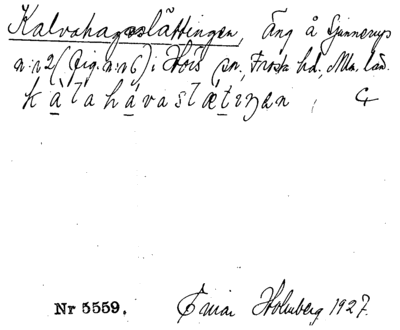 Kalvahagaslättingen, Äng å Gunneryds
n:r 2 (fig. n:r 6) i Hörs sn, Frosta hd, Mm. län.
kàlahávaslætiŋən
Nr 5559. Einar Holmberg 1927.